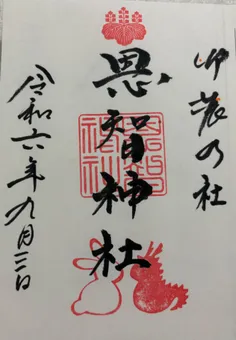 卯辰乃社
恩智神社
恩智神社
令和六年九月三日